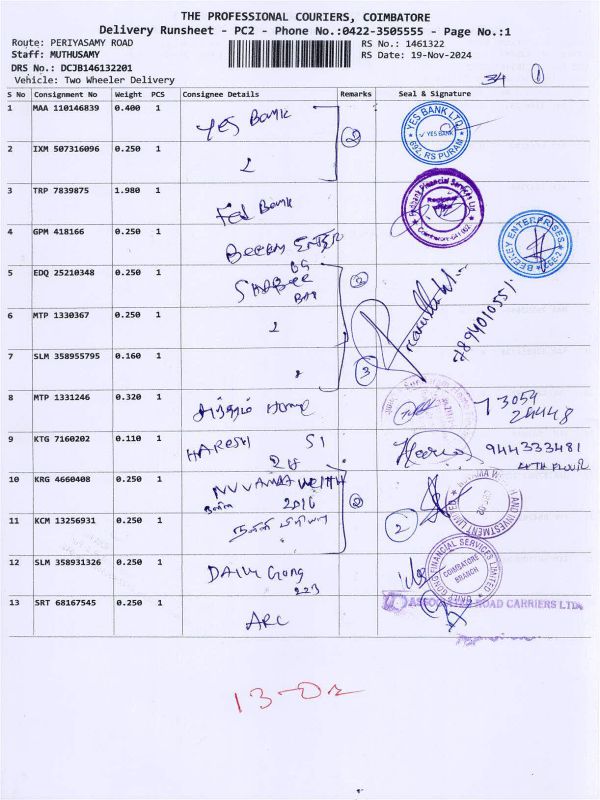 THE PROFESSIONAL COURIERS, COIMBATORE
Delivery Runsheet - PC2 - Phone No.:0422-3505555 - Page No.:1
Route: PERIYASAMY ROAD
RS No.: 1461322
Staff: MUTHUSAMY
RS Date: 19-Nov-2024
DRS No.: DCJB146132201
Vehicle: Two Wheeler Delivery
34 1
S No Consignment No Weight PCS Consignee Details Remarks Seal & Signature
1 MAA 110146839 0.400 1 Yes Bank
2
YES BANK LTD.
YES BANK
692, RS PURAM
2 IXM 507316096 0.250 1
3 TRP 7839875 1.980 1 Fed Bank
Fedbank Financial Services Ltd.
Regional Office
4 GPM 418166 0.250 1
BEEKEY ENTERPRISES
5 EDQ 25210348 0.250 1
6 MTP 1330367 0.250 1
7 SLM 358955795 0.160 1
3
8 MTP 1331246 0.320 1 Home
73054
24448
9 KTG 7160202 0.110 1 HARESH SI
944333481
4TH FLOUR
10 KRG 4660408 0.250 1
2016
2
11 KCM 13256931 0.250 1
2
12 SLM 358931326 0.250 1 DAILY Gong
223
FINANCIAL SERVICES LIMITED
COIMBATORE
BRANCH
13 SRT 68167545 0.250 1 ARC
ASSOCIATED ROAD CARRIERS LTD.
13-Dr